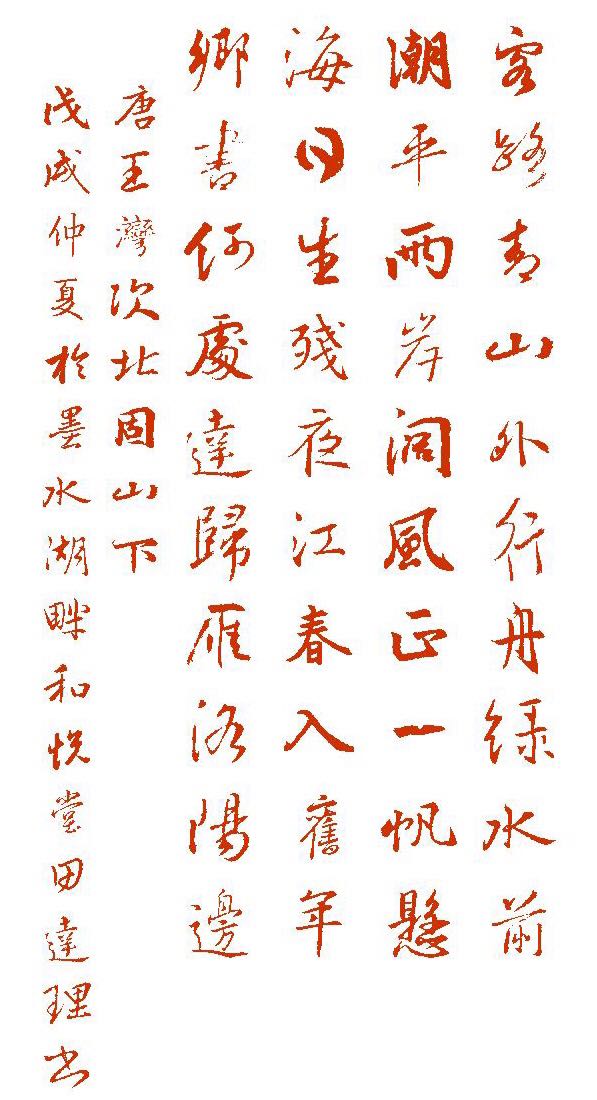 客路青山外行舟绿水前
潮平兩岸闊風正一帆懸
海日生殘夜江春入舊年
鄉書何處達歸雁洛陽邊
唐王灣次北固山下
戊戌仲夏於墨水湖畔和悅堂田達理书